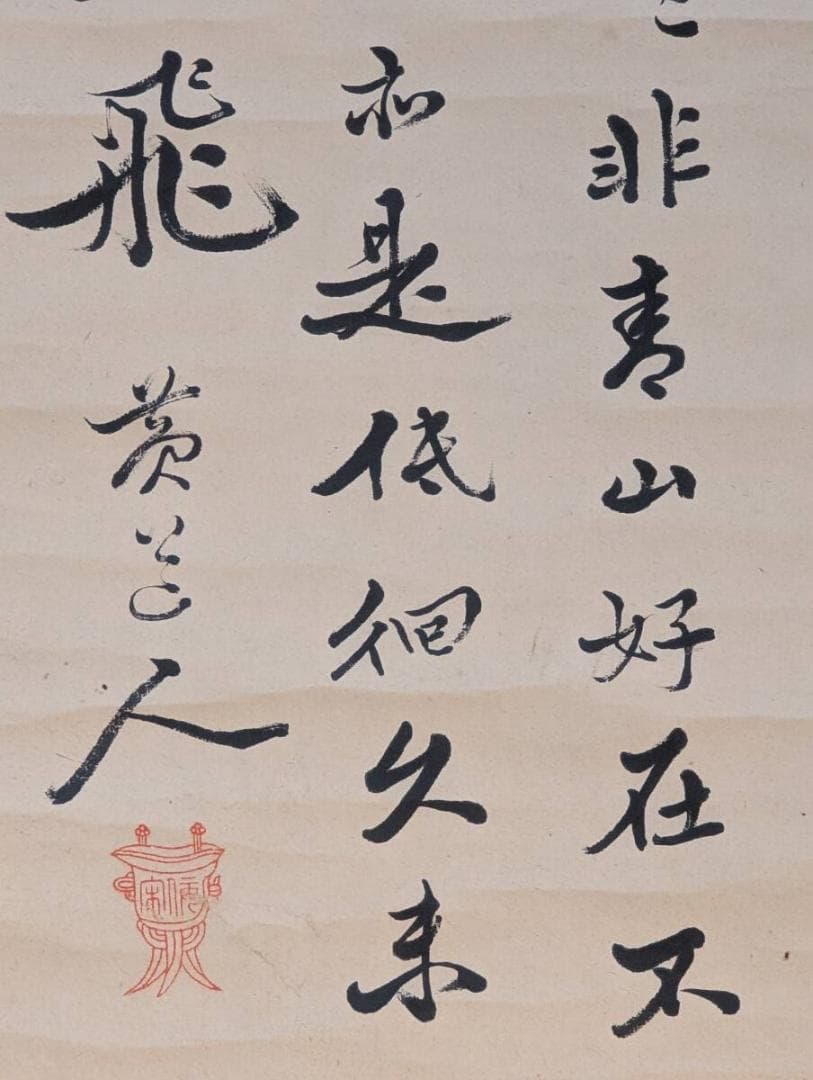 非青山好在不
亦是低徊久未
飛 黄道人